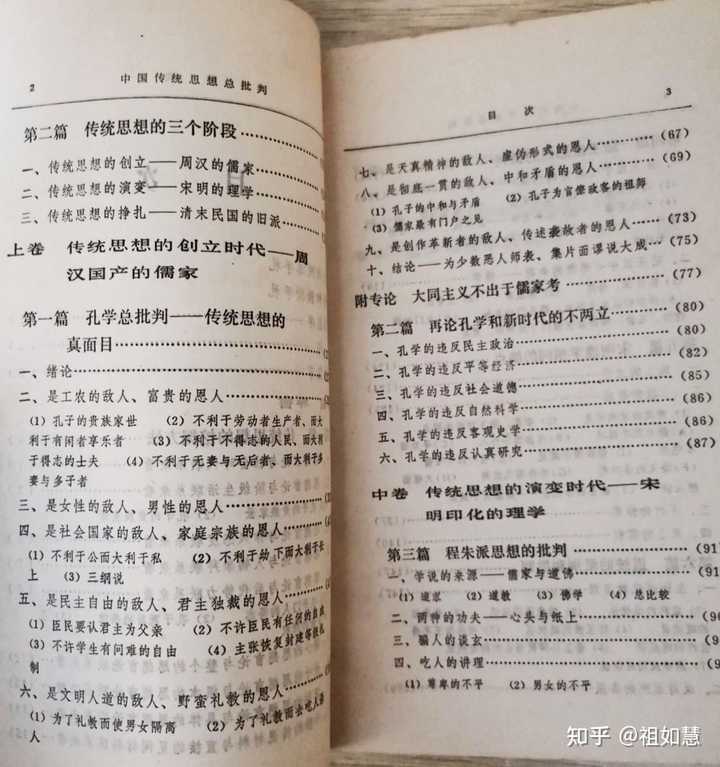 2 中国传统思想总批判
第二篇 传统思想的三个阶段……………
一、传统思想的创立——周汉的儒家………
二、传统思想的演变——宋明的理学………
三、传统思想的挣扎——清末民国的旧派
上卷 传统思想的创立时代——周
汉国产的儒家
第一篇 孔学总批判——传统思想的
真面目………………………
一、绪论………………………………
二、是工农的敌人、富贵的恩人……………
(1) 孔子的贵族家世 (2) 不利于劳动者生产者、而大
利于有闲者享乐者 (3) 不利于不得志的人民、而大利
于得志的士夫 (4) 不利于无妻与无后者、而大利于多
妻与多子者
三、是女性的敌人、男性的恩人……………
四、是社会国家的敌人、家庭宗族的恩人……
(1) 不利于公而大利于私 (2) 不利于幼下而大利于长
上 (3) 三纲说
五、是民主自由的敌人、君主独裁的恩人……
(1) 臣民要认君主为父亲 (2) 不许臣民有任何的自由
(3) 不许学生有问难的自由 (4) 主张恢复封建等级礼
制
六、是文明人道的敌人、野蛮礼教的恩人……
(1) 为了礼教而使男女隔离 (2) 为了礼教而去吃人
人
目次 3
七、是天真精神的敌人、虚伪形式的恩人…… (67)
八、是彻底一贯的敌人、中和矛盾的恩人…… (69)
(1) 孔子的中和与矛盾 (2) 孔子为官僚政客的祖师
(3) 儒家最有门户之见
九、是创作革新者的敌人、传述袭故者的恩人…… (73)
十、结论——为少数恶人师表、集片面谬说大成… (75)
附专论 大同主义不出于儒家考………… (77)
第二篇 再论孔学和新时代的不两立…… (80)
一、孔学的违反民主政治……………… (80)
二、孔学的违反平等经济……………… (82)
三、孔学的违反社会道德……………… (85)
四、孔学的违反自然科学……………… (86)
五、孔学的违反客观史学……………… (86)
六、孔学的违反认真研究……………… (87)
中卷 传统思想的演变时代——宋
明印化的理学
第三篇 程朱派思想的批判…………… (91)
一、学说的来源——儒家与道佛………… (91
(1) 道家 (2) 道教 (3) 佛学 (4) 总比较
二、两种的功夫——心头与纸上…………
三、骗人的谈玄………………………
四、吃人的讲理………………………
(1) 尊卑的不平 (2) 男女的不平
知乎 @祖如慧